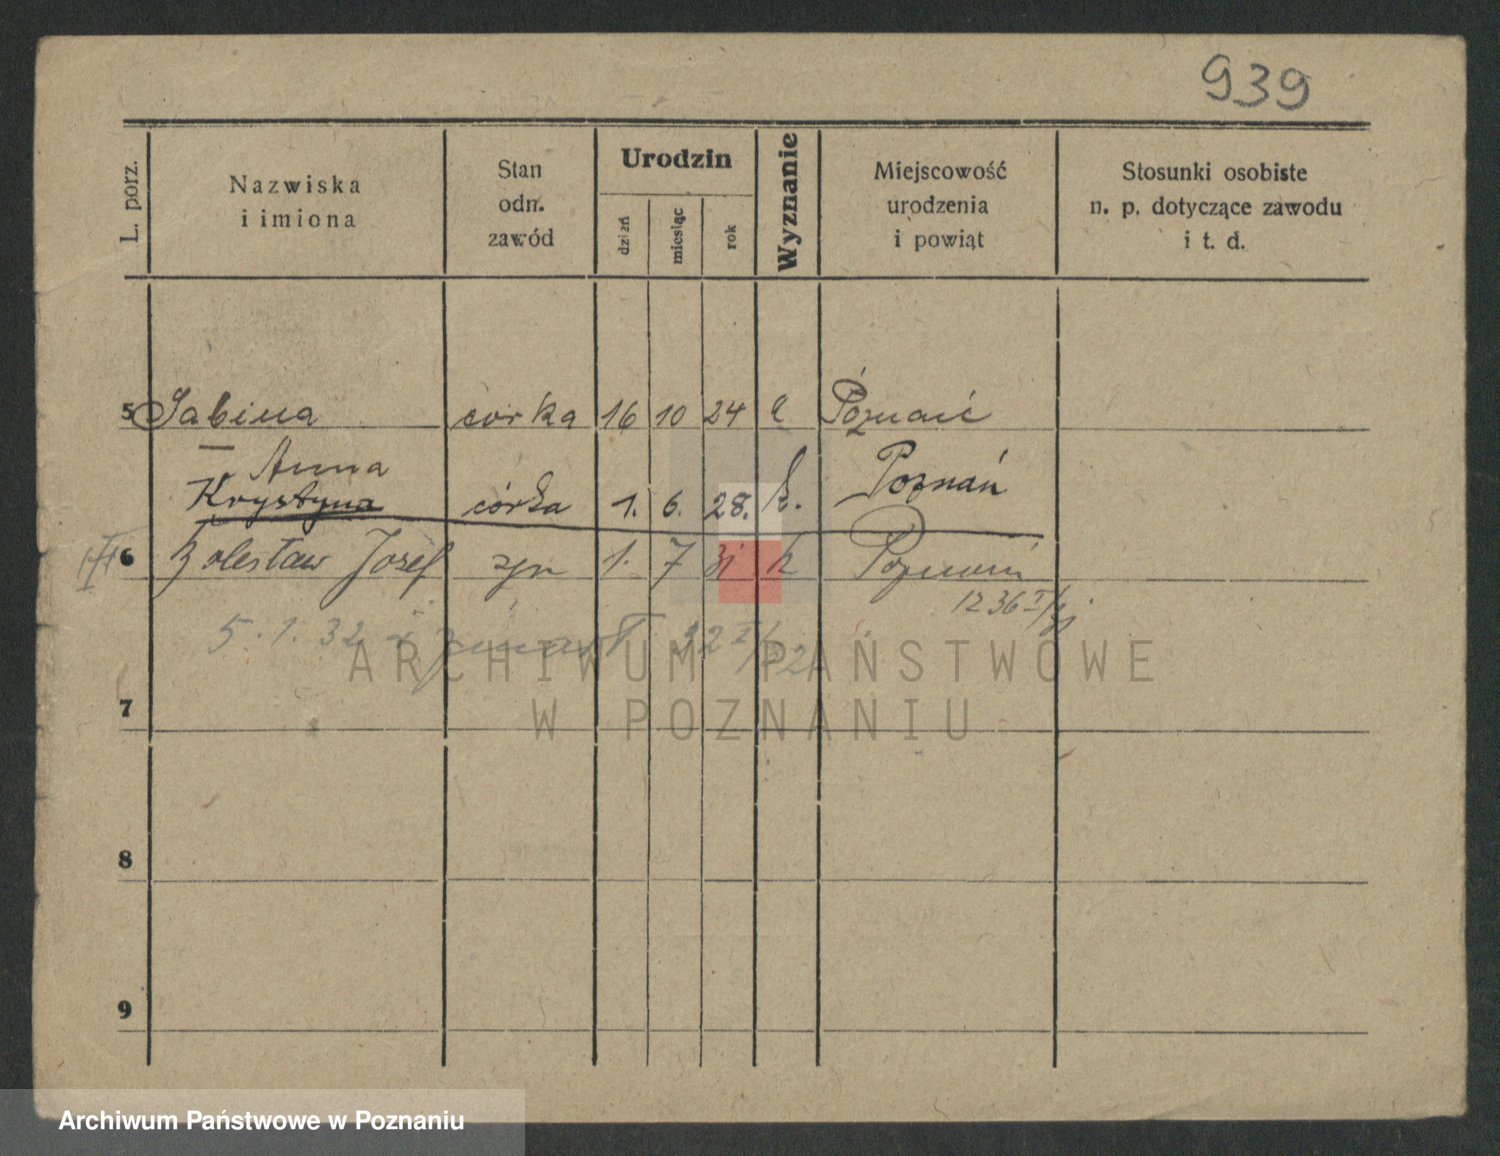 939
L. porz.
Nazwiska
i imiona
Stan
odn.
zawód
Urodzin
dzień
miesiąc
rok
Wyznanie
Miejscowość
urodzenia
i powiąt
Stosunki osobiste
n. p. dotyczące zawodu
i t. d.
5 Sabina córka 16 10 24 Poznań
Anna
Krystyna córka 1. 6. 28. k. Poznań
6 Bolesław Józef syn 1. 7 31 k Poznań
1236 I/31
5.1.32 zmarł 32 I/32
ARCHIWUM PAŃSTWOWE
W POZNANIU
7
8
9
Archiwum Państwowe w Poznaniu